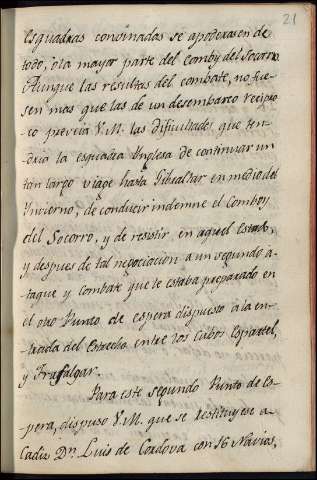 21
esquadras convinadas se apoderasen de
todo, ó la mayor parte del comby del Socorro.
Aunque las resultas del combate, no fue-
sen mas que las de un desembarco recipro-
co preveia V.M. las dificultades que ten-
dria la esquadra Ynglesa de continuar un
tan largo viage hasta Gibraltar en medio del
Ynvierno, de conducir indemne el Comboy
del Socorro, y de resistir en aquel Estado,
y despues de tal negociacion a un segundo a-
taque y combate que le estaba preparado en
el otro Punto de espera dispuesto a la en-
trada del estrecho entre los Cabos Espartel,
y Trafalgar.
Para este segundo Punto de Es-
pera, dispuso V.M. que se restituyese a
Cadiz Dn. Luis de Cordova con 16 Navios,